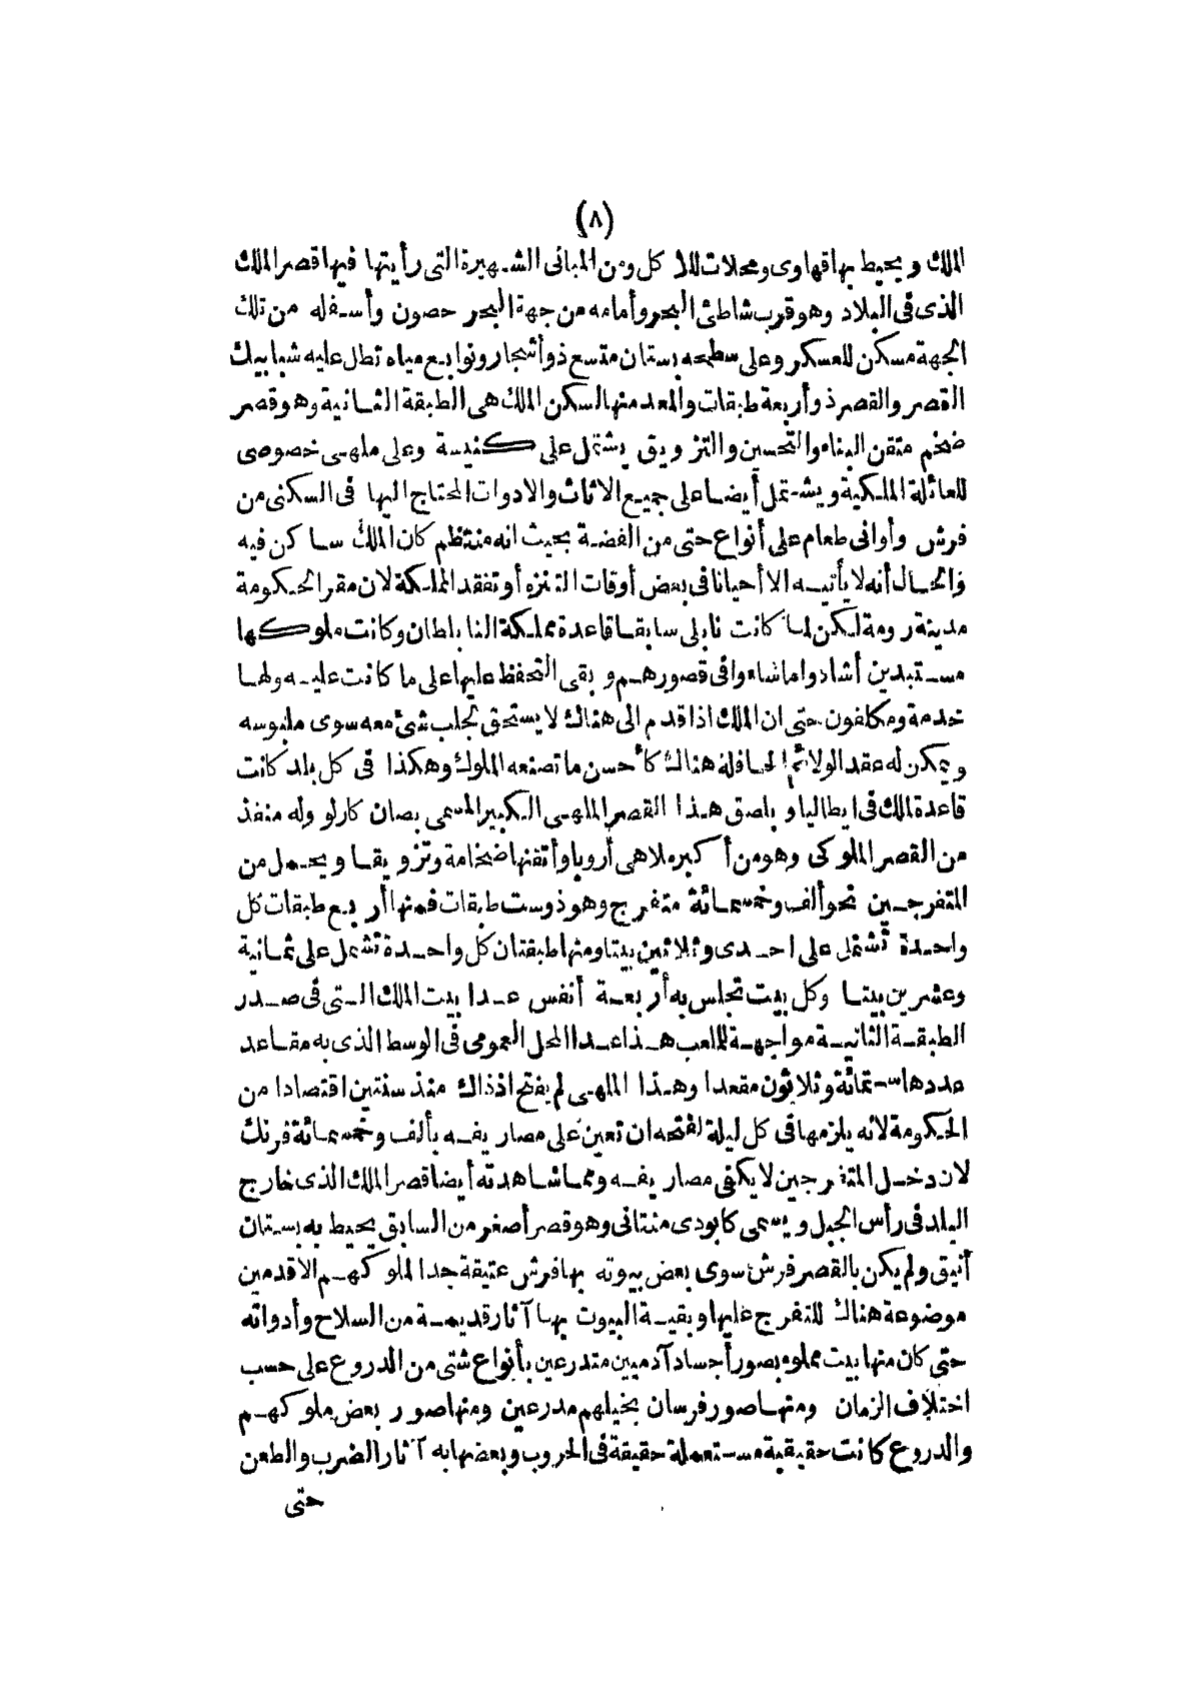 (٨)
الملك ويحيط بها قهاوى ومحلات للاكل ومن المبانى الشهيرة التى رأيتها فيها قصر الملك
الذى فى البلاد وهو قرب شاطئ البحر وأمامه من جهة البحر حصون وأسفله من تلك
الجهة مسكن للعسكر وعلى سطحه بستان متسع ذو أشجار ونوابع مياه تطل عليه شبابيك
القصر والقصر ذو أربعة طبقات والمعد منها لسكن الملك هى الطبقة الثانية وهو قصر
ضخم متقن البناء والتحسين والتزويق يشتمل على كنيسة وعلى ملهى خصوصى
للعائلة الملكية ويشتمل أيضا على جميع الاثاث والادوات المحتاج اليها فى السكنى من
فرش وأوانى طعام على أنواع حتى من الفضة بحيث انه منتظم كان الملك ساكن فيه
والحال أنه لا يأتيه الا أحيانا فى بعض أوقات التنزه أو تفقد المملكة لان مقر الحكومة
مدينة رومة لكن لما كانت نابلى سابقا قاعدة مملكة النابلطان وكانت ملوكها
مستبدين أشادوا ما شاءوا فى قصورهم وبقى التحفظ عليها على ما كانت عليه ولها
خدمة ومكلفون حتى ان الملك اذا قدم الى هناك لا يستحق لجلب شئ معه سوى ملبوسه
ويمكن له عقد الولائم الحافلة هناك كأحسن ما تصنعه الملوك وهكذا فى كل بلد كانت
قاعدة الملك فى ايطاليا وبلصق هذا القصر الملهى الكبير المسمى بصان كارلو وله منفذ
من القصر الملوكى وهو من أكبر ملاهى أروبا وأتقنها ضخامة وتزويقا ويحمل من
المتفرجين نحو ألف وخمسمائة متفرج وهو ذو ست طبقات فمنها أربع طبقات كل
واحدة تشتمل على احدى وثلاثين بيتا ومنها طبقتان كل واحدة تشتمل على ثمانية
وعشرين بيتا وكل بيت تجلس به أربعة أنفس عدا بيت الملك التى فى صدر
الطبقة الثانية مواجهة للملعب هذا عدا المحل العمومى فى الوسط الذى به مقاعد
عددها ستمائة وثلاثون مقعدا وهذا الملهى لم يفتح اذذاك منذ سنتين اقتصادا من
الحكومة لانه يلزمها فى كل ليلة لفتحه ان تعين على مصاريفه بألف وخمسمائة فرنك
لان دخل المتفرجين لا يكفى مصاريفه ومما شاهدته أيضا قصر الملك الذى خارج
البلد فى رأس الجبل ويسمى كابودى منتانى وهو قصر أصغر من السابق يحيط به بستان
أنيق ولم يكن بالقصر فرش سوى بعض بيوته بها فرش عتيقة جدا لملوكهم الاقدمين
موضوعة هناك للتفرج عليها وبقية البيوت بها آثار قديمة من السلاح وأدواته
حتى كان منها بيت مملوء بصور أجساد آدميين متدرعين بأنواع شتى من الدروع على حسب
اختلاف الزمان ومنها صور فرسان بخيلهم مدرعين ومنها صور بعض ملوكهم
والدروع كانت حقيقية مستعملة حقيقة فى الحروب وبعضها به آثار الضرب والطعن
حتى